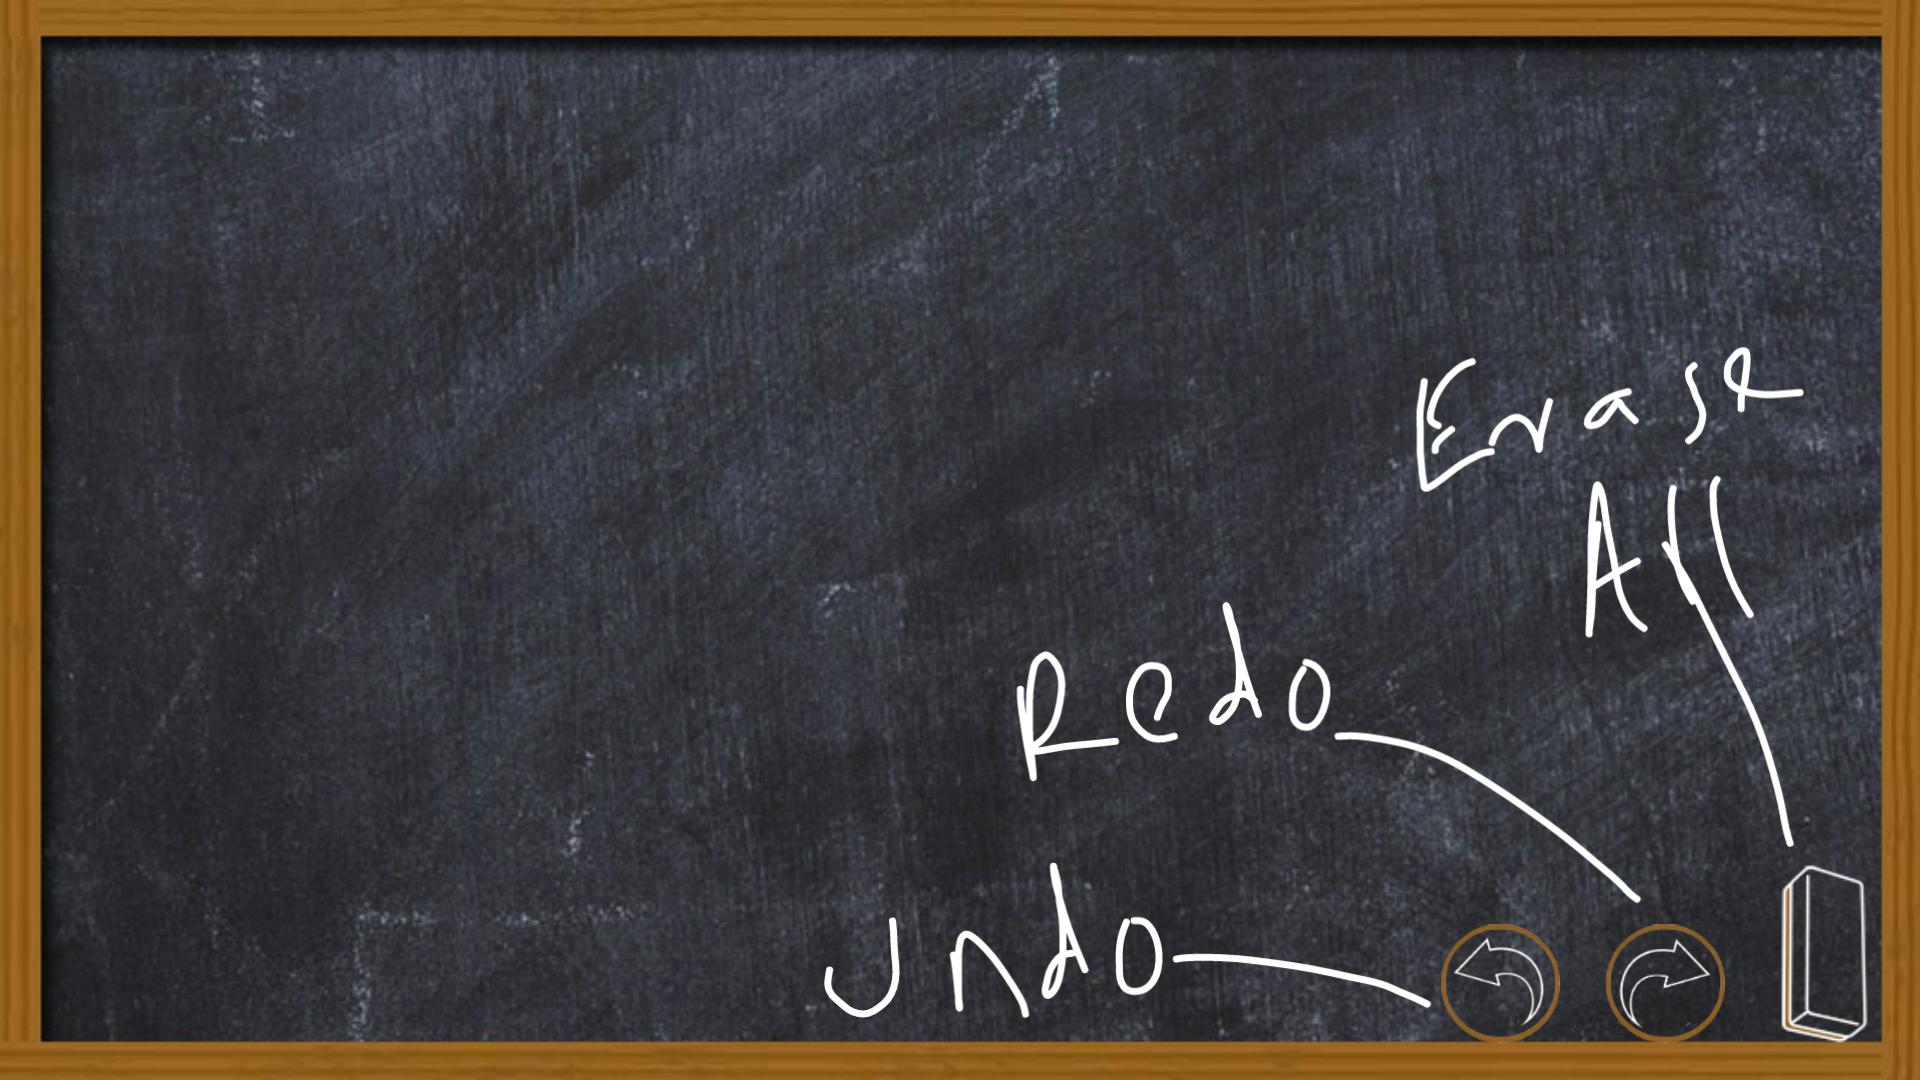 Erase
All
Redo
Undo